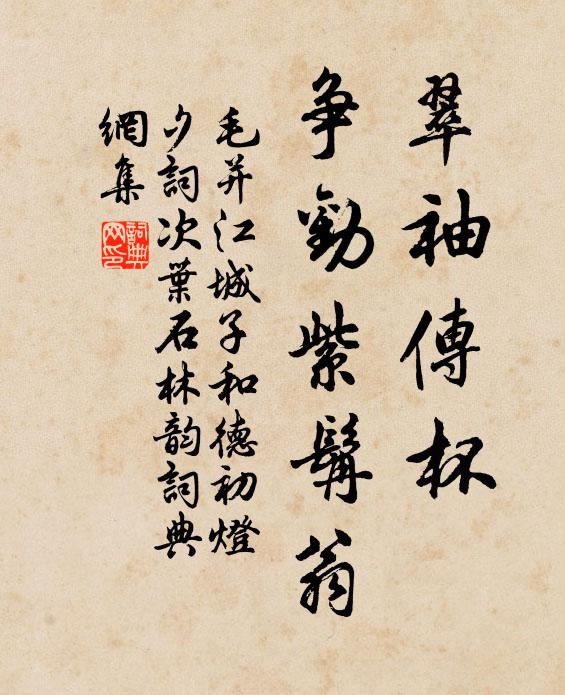 翠袖傳杯
争勸紫髯翁
毛并江城子和德初燈
夕詞次葉石林韵詞典
網集
詞典
网印